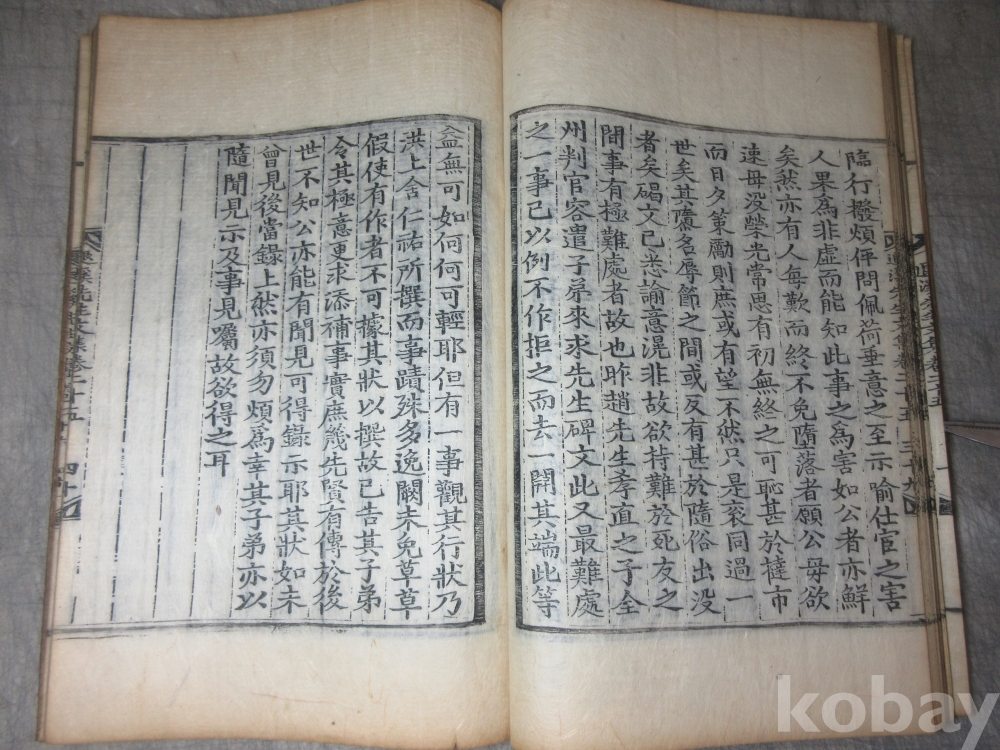 臨行撥煩伻問佩荷垂意之至示喻仕宦之害
人果爲非虛而能知此事之爲害如公者亦鮮
矣然亦有人每歎而終不免墮落者願公毋欲
速毋沒榮光常思有初無終之可恥甚於撻市
而日夕策勵則庶或有望不然只是衮同過一
世矣其隳名辱節之間或反有甚於隨俗出沒
者矣碣文已悉諭意滉非故欲持難於死友之
間事有極難處者故也昨趙先生孝直之子全
州判官容遣子弟來求先生碑文此又最難處
之一事已以例不作拒之而去一開其端此等
益無可如何何可輕耶但有一事觀其行狀乃
洪上舍仁祐所撰而事蹟殊多逸闕未免草草
假使有作者不可據其狀以撰故已告其子弟
令其極意更求添補事實庶幾先賢有傳於後
世不知公亦能有聞見可得錄示耶其狀如未
曾見後當錄上然亦須勿煩爲幸其子弟亦以
隨聞見示及事見囑故欲得之耳
四十
kobay